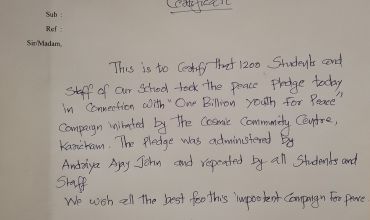 Certificate
Sub :
Ref :
Sir/Madam,
This is to Certify that 1200 Students and
Staff of our School took the peace pledge today
in Connection with "One Billion Youth For Peace"
Campaign initiated by The Cosmic Community Centre,
The Pledge was administered by
Ajay John and repeated by all Students and
Staff
We wish all the best for this important Campaign for peace